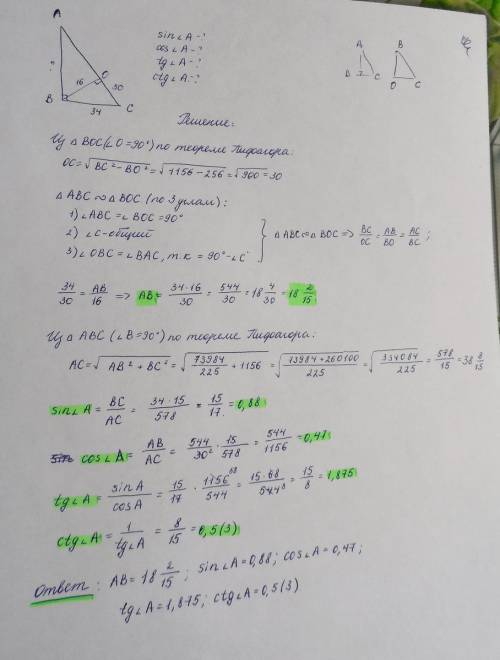 A
?
16
O
30
B
34
C
sin∠A-?
cos∠A-?
tg∠A-?
ctg∠A-?
A
B
C
B
O
C
Решение:
Из △BOC(∠O=90°) по теореме Пифагора:
OC=√BC²-BO² = √1156-256 = √900 = 30
△ABC∽△BOC (по 3 углам):
1) ∠ABC=∠BOC=90°
2) ∠C-общий
3) ∠OBC=∠BAC, т.к = 90°-∠C
} △ABC∽△BOC => BC/OC = AB/BO = AC/BC ;
34/30 = AB/16 => AB= 34·16/30 = 544/30 = 18 4/30 = 18 2/15
Из △ABC (∠B=90°) по теореме Пифагора:
AC=√AB²+BC² = √73984/225 + 1156 = √73984+260100/225 = √334084/225 = 578/15 = 38 8/15
sin∠A = BC/AC = 34·15/578 = 15/17 = 0,88
cos∠A = AB/AC = 544/30 · 15/578 = 544/1156 = 0,47
tg∠A = sinA/cosA = 15/17 · 1156/544 = 15·68/544 = 15/8 = 1,875
ctg∠A = 1/tg∠A = 8/15 = 0,5(3)
Ответ: AB=18 2/15; sin∠A=0,88; cos∠A=0,47;
tg∠A=1,875; ctg∠A=0,5(3)